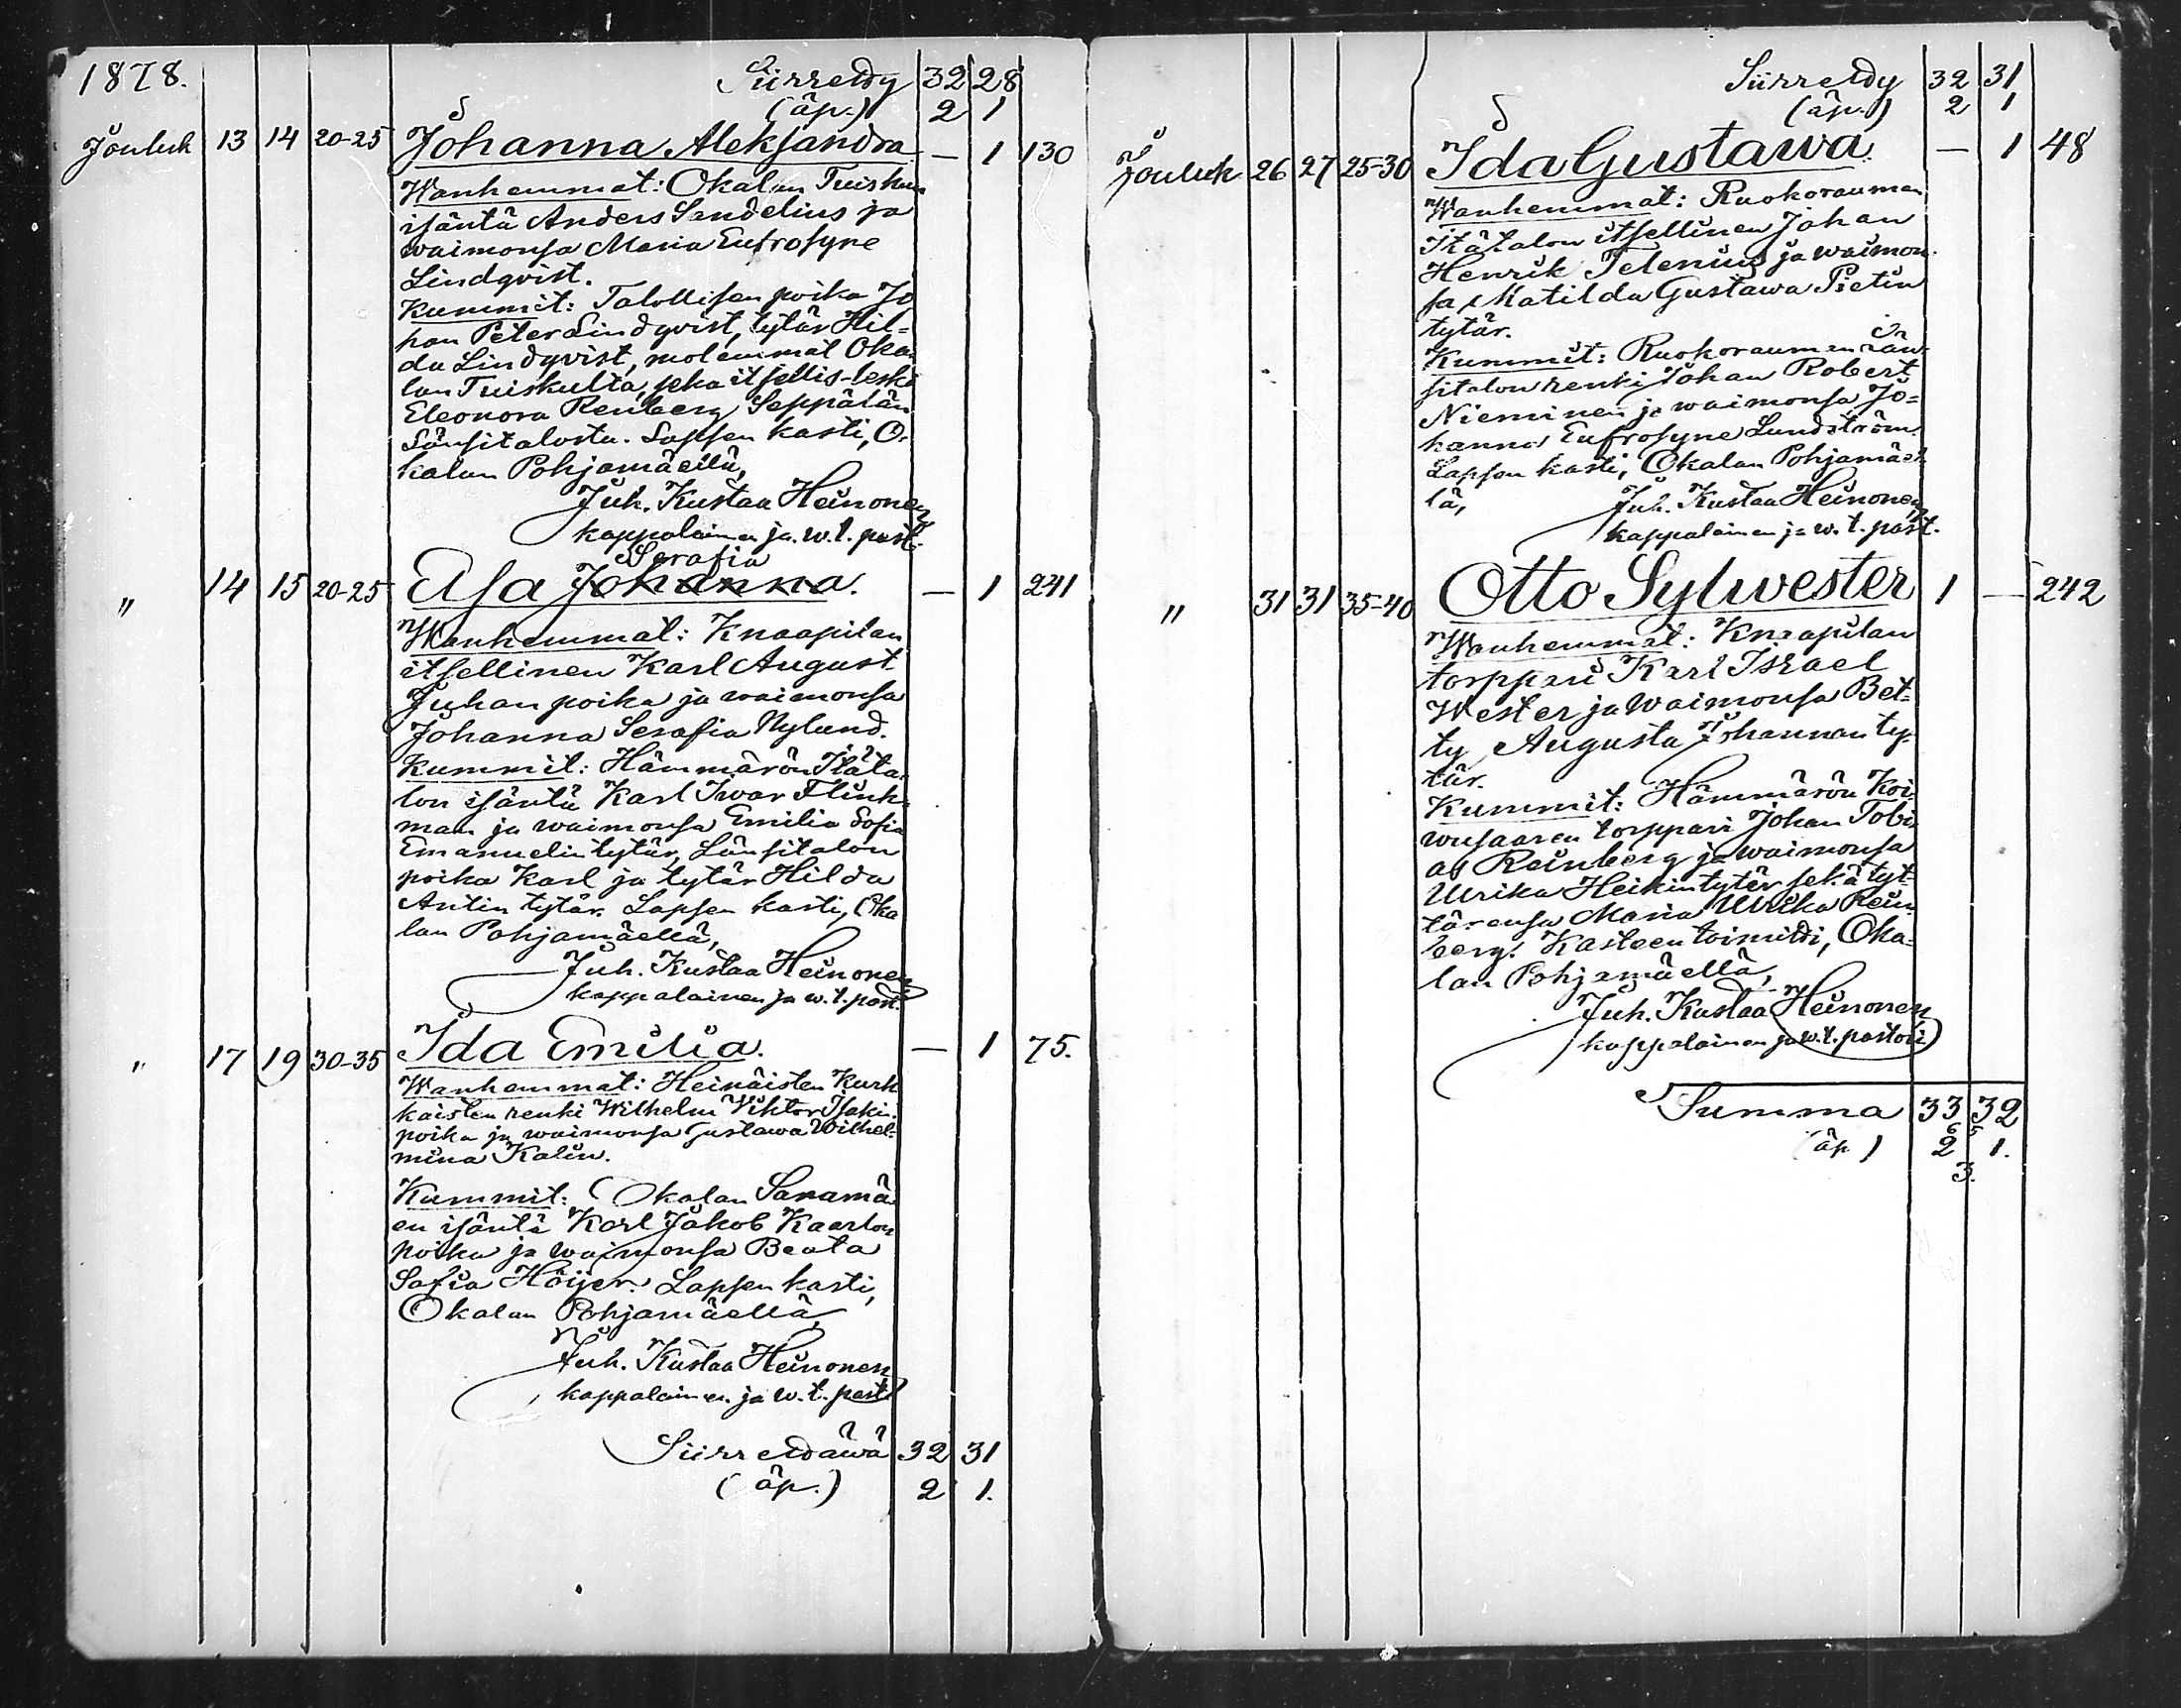 1878.
Siirretdy 32 28
(äp.) 2 1
Jouluk 13 14 20-25 Johanna Aleksandra — 1 130
Wanhemmat: Okalan Tuiskun
isäntä Anders Sandelius ja
waimonsa Maria Eufrosyne
Lindqvist.
Kummit: Talollisen poika Jo
han Peter Lindqvist, tytär Hil=
da Lindqvist, molemmat Oka
lan Tuiskulta, seka itsellis-leski
Eleonora Renberg Seppälän
Länsitalosta. Lapsen kasti, O-
kalan Pohjamäellä,
Juh. Kustaa Heinonen
kappalainen ja. w. t. past.
Serafia
" 14 15 20-25 Elsa Johanna. — 1 241
Wanhemmat: Knaapilan
itsellinen Karl August
Juhan poika ja waimonsa
Johanna Serafia Nylund.
Kummit: Hämmärön Itäta-
lon isäntä Karl Iwar Flink-
man ja waimonsa Emilia Sofia
Emanuelin tytär, Länsitalon
poika Karl ja tytär Hilda
Antin tytär. Lapsen kasti, Oka
lan Pohjamäellä,
Juh. Kustaa Heinonen
kappalainen ja w. t. past.
" 17 19 30-35 Ida Emilia. — 1 75.
Wanhemmat: Heinäisten Kurk
kaisten renki Wilhelm Viktor Isakin
poika ja waimonsa Gustawa Wilhel-
mina Kalin.
Kummit: Okalan Sanamä
en isäntä Karl Jakob Kaarlon
poika ja waimonsa Beata
Sofia Höijer. Lapsen kasti,
Okalan Pohjamäellä,
Juh. Kustaa Heinonen
kappalainen ja w. t. past.
Siirretdäwä 32 31
(äp.) 2 1.
Siirretdy 32 31
(äp.) 2 1
Jouluk 26 27 25-30 Ida Gustawa. — 1 48
Wanhemmat: Ruokorauman
Itätalon itsellinen Johan
Henrik Telenius ja waimon-
sa Matilda Gustawa Pietin
tytär.
Kummit: Ruokorauman Län-
sitalon renki Johan Robert
Nieminen ja waimonsa Jo=
hanna Eufrosyne Lundström.
Lapsen kasti, Okalan Pohjamäel-
lä,
Juh. Kustaa Heinonen,
kappalainen ja w. t. past.
" 31 31 35-40 Otto Sylwester 1 — 242
Wanhemmat: Knaapilan
torppari Karl Israel
Wester ja waimonsa Bet=
ty Augusta Johannan ty-
tär.
Kummit: Hämmärön Koi-
wusaaren torppari Johan Tobi-
as Reinberg ja waimonsa
Ulrika Heikin tytär sekä tyt=
tärensa Maria Ulrika Rein-
berg. Kasteen toimitti, Oka=
lan Pohjamäellä,
Juh. Kustaa Heinonen
kappalainen ja w. t. pastori
Summa 33 32
6 5
(äp.) 2 1.
3.